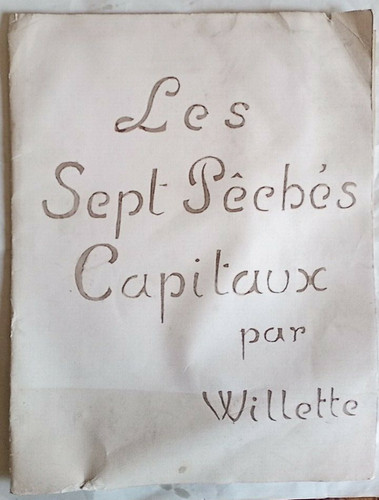 Les
Sept Pêchés
Capitaux
par
Willette